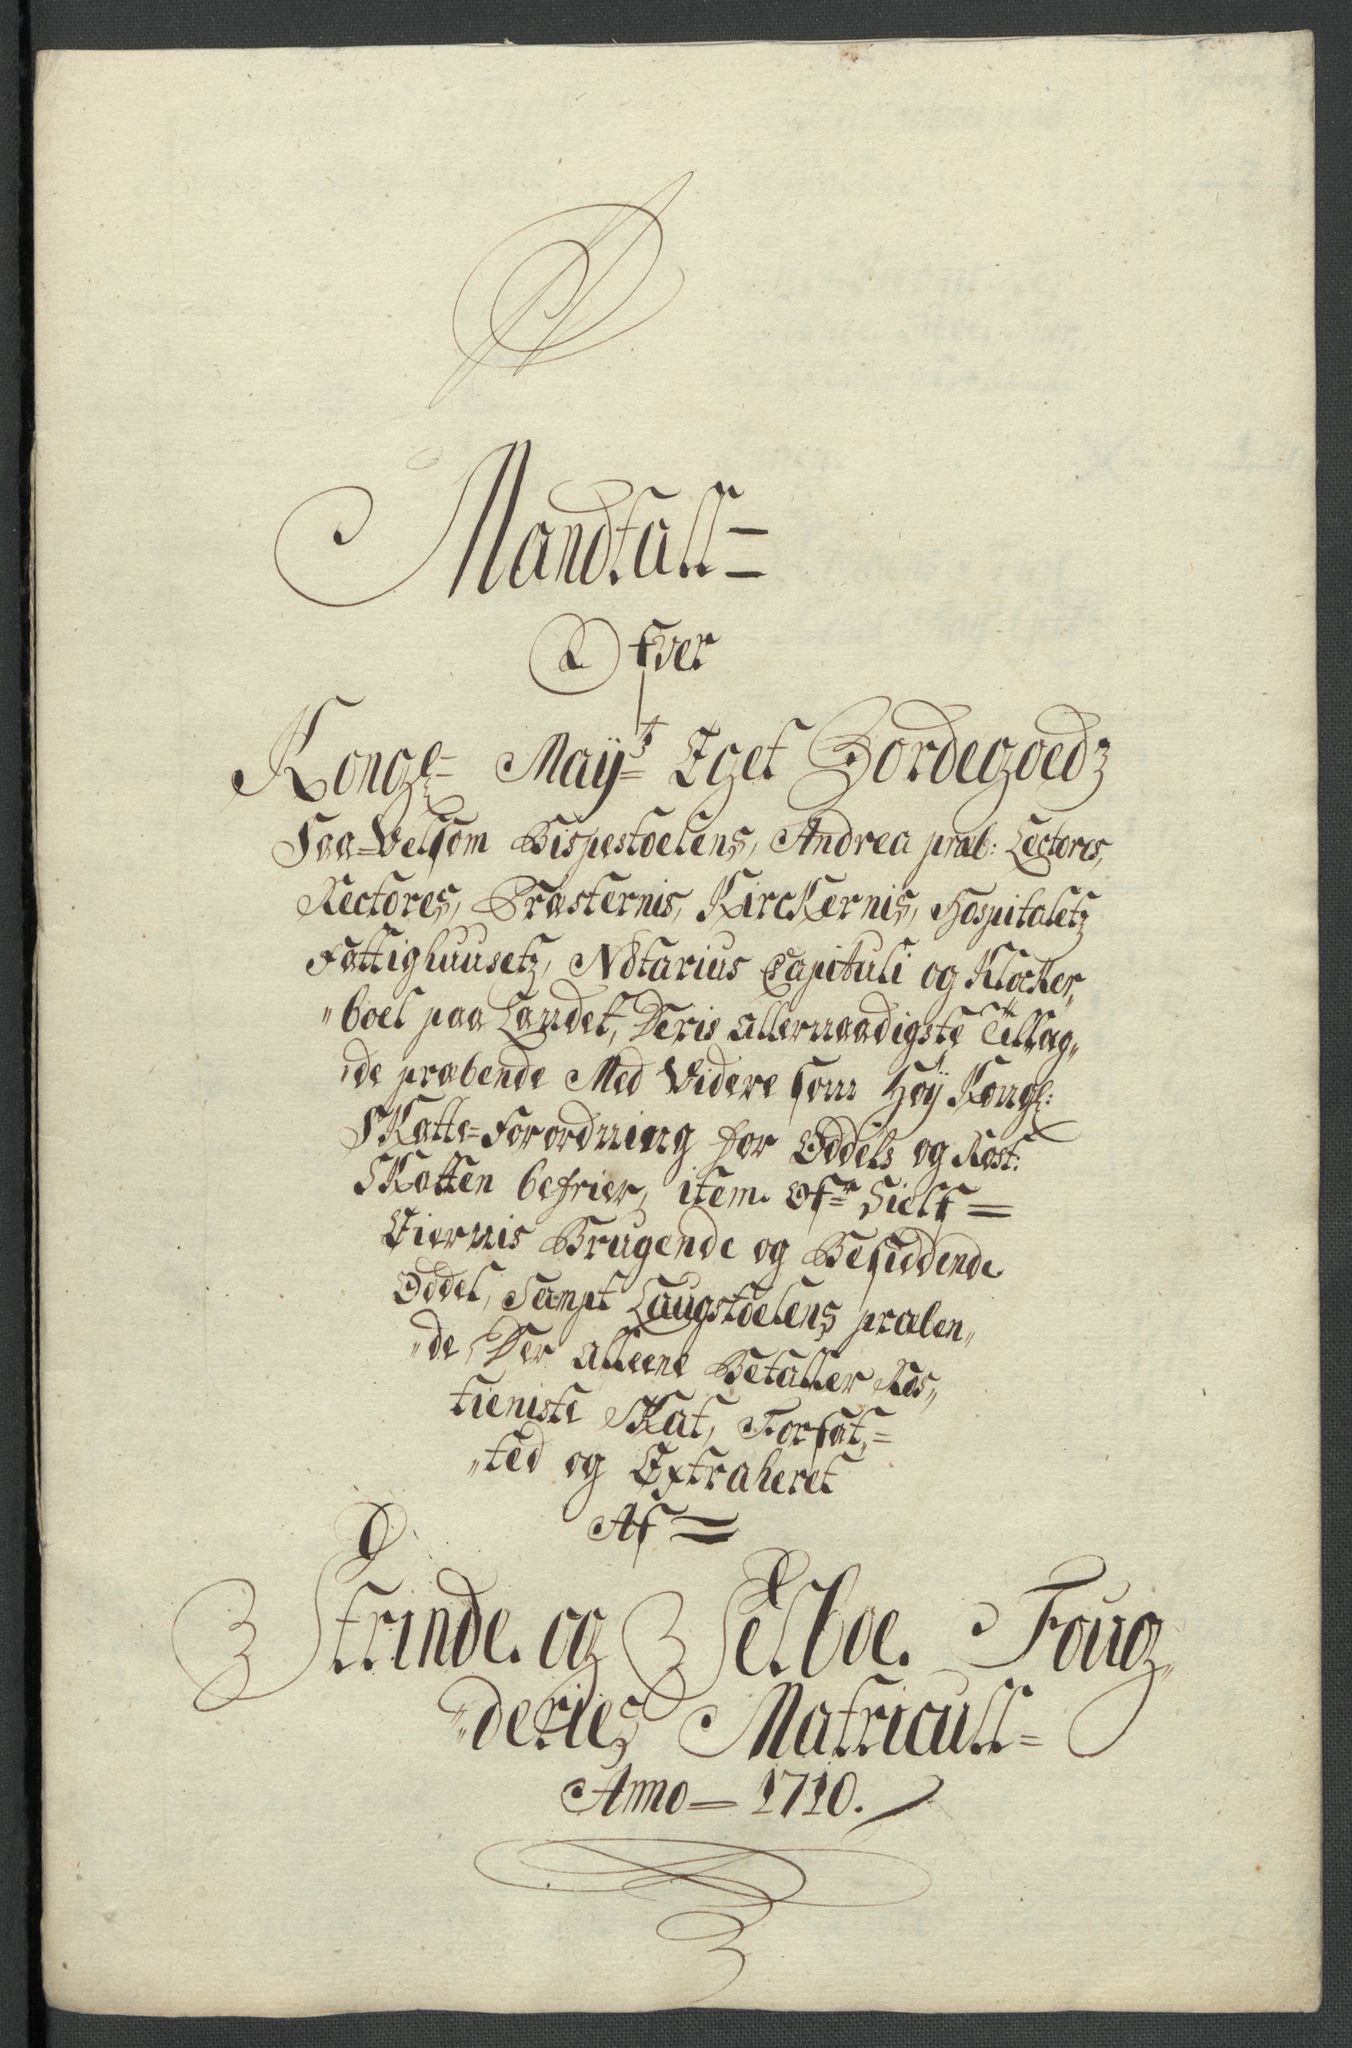 Mandtall=
Ofver
Kongl= May=tz Eget Bordegoedz
Saa=Velsom Bispestoelens, Andrea præb: Lectores,
Rectores, Præsternis, Kirckernis, Hospitaletz
Fattighuusetz, Notarius Capituli og Klocker,,
,,boel paa Landet, Deris allernaadigste Tillag,,
,,de præbende Med Videre som Høy Kongl:
Skatte=Forordning for Oddels og Rost:
Skatten befrier, item. Of=r Sielf=
Eiernis Brugende og Besiddende
Oddel, Sampt Laugstoelens præben,,
,,de Der alleene Betaller Ros,,
tieniste Skat, Forfat,=
,,ted og Extraheret
Af=
Strinde. og Selboe. Foug,,
,,deries Matricull=
Anno=1710.